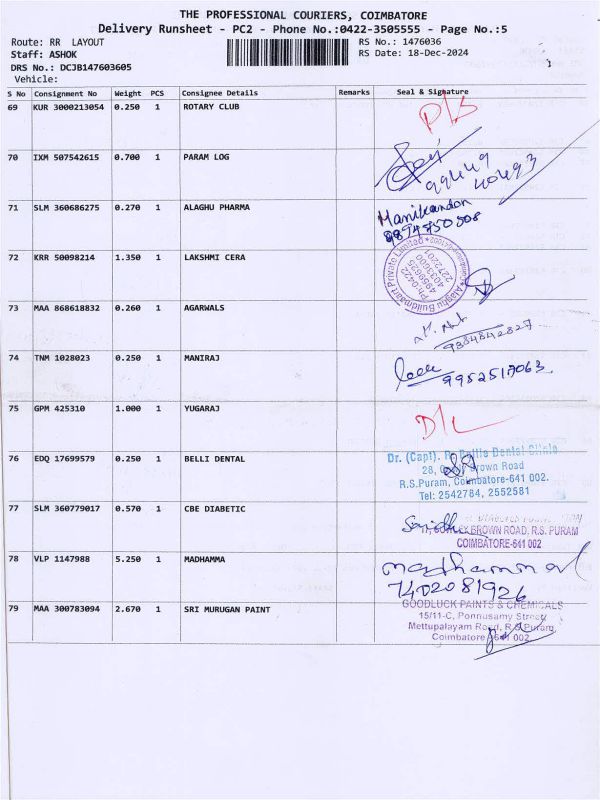 THE PROFESSIONAL COURIERS, COIMBATORE
Delivery Runsheet - PC2 - Phone No.:0422-3505555 - Page No.:5
Route: RR LAYOUT
Staff: ASHOK
DRS No.: DCJB147603605
Vehicle:
RS No.: 1476036
RS Date: 18-Dec-2024
S No Consignment No Weight PCS Consignee Details Remarks Seal & Signature
69 KUR 3000213054 0.250 1 ROTARY CLUB
70 IXM 507542615 0.700 1 PARAM LOG
71 SLM 360686275 0.270 1 ALAGHU PHARMA
Manikandan
9894750508
72 KRR 50098214 1.350 1 LAKSHMI CERA
Alaghu Buildmart Private Limited
Ph:0422
4959625
4033600
2272201
73 MAA 868618832 0.260 1 AGARWALS
9884842827
74 TNM 1028023 0.250 1 MANIRAJ
9952517063
75 GPM 425310 1.000 1 YUGARAJ
D/L
76 EDQ 17699579 0.250 1 BELLI DENTAL
Dr. (Capt). Dental Clinic
28, Brown Road
R.S.Puram, Coimbatore-641 002.
Tel: 2542784, 2552581
77 SLM 360779017 0.570 1 CBE DIABETIC
BROWN ROAD, R.S. PURAM
COIMBATORE-641 002
78 VLP 1147988 5.250 1 MADHAMMA
madhammal
7402081926
79 MAA 300783094 2.670 1 SRI MURUGAN PAINT
GOODLUCK PAINTS & CHEMICALS
15/11-C, Ponnusamy Street
Mettupalayam Road, R.S.Puram,
Coimbatore 641 002.